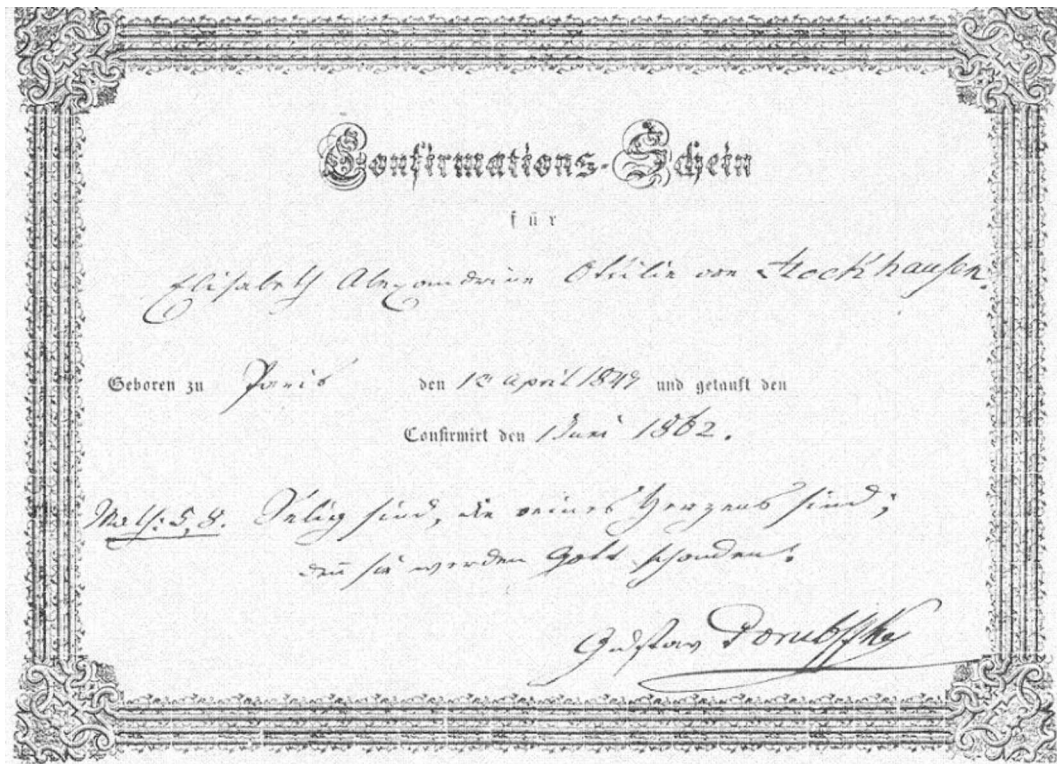 Confirmations-Schein
für
Elisabeth Alexandrine Ottilie von Stockhausen.
Geboren zu Paris den 13 April 1847 und getauft den
Confirmirt den 1 Juni 1862.
Math: 5, 8. Selig sind, die reines Herzens sind;
deñ sie werden Gott schauen.
Gustav Porubszky